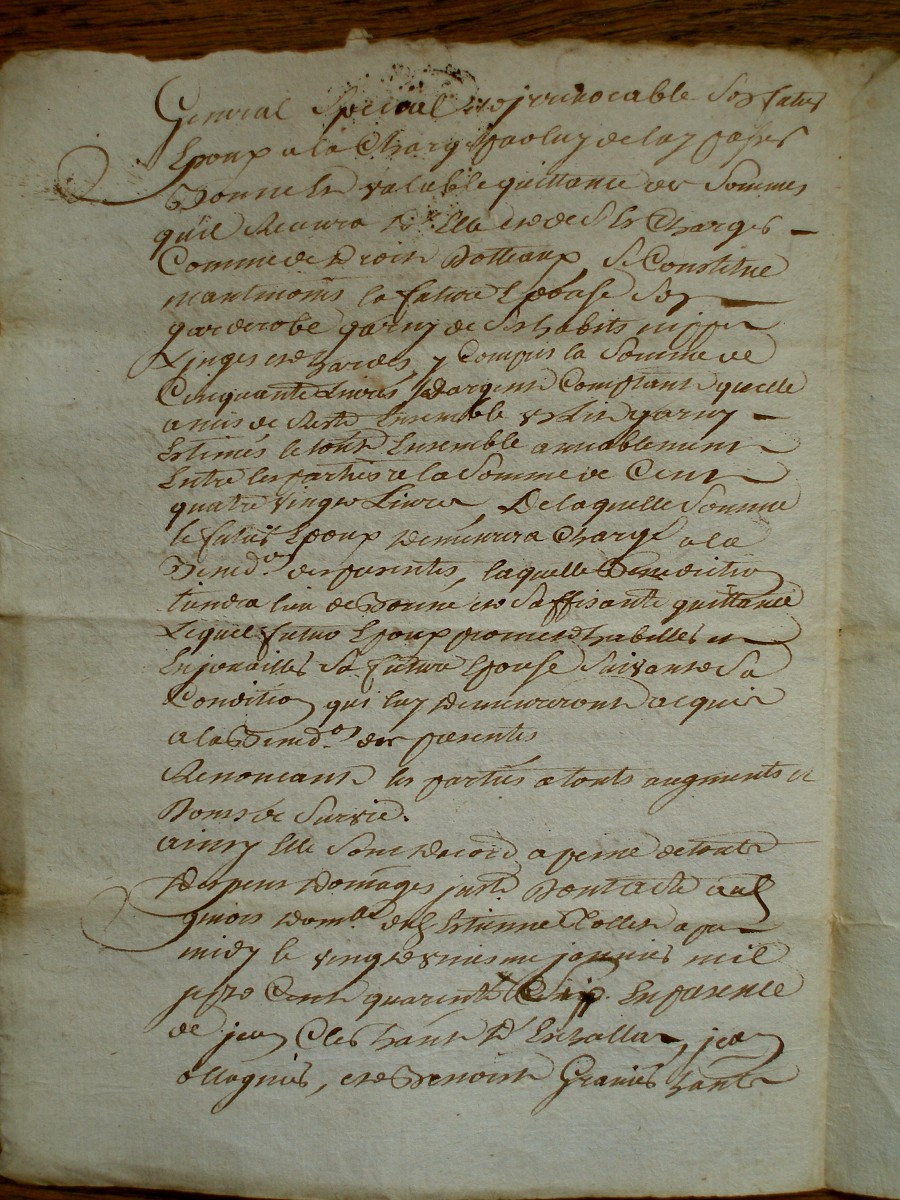 General Special et jrrevocable Son futur
Epoux a la Charge pour luy de luy passer
Bonne et vallable quittance des Sommes
quil Recevra d'Elle et de Ses Charges
Comme de Droit Dotteaux, Se Constitue
maintenant la future Epouse Son
garderobe garny de Ses habits nippes
Linges et hardes, y Compris la Somme de
Cinquante Livres d'argent Comptant quelle
a mis de Reste Ensemble garny
Estimés le tout Ensemble amiablement
Entre les parties a la Somme de Cent
quatre vingt Livres, De laquelle Somme
le futur Epoux Demeurera Chargé a la
Bened.on des parentes, laquelle Benediction
tiendra lieu de Bonne et Suffisante quittance
Lequel futur Epoux promet habilles et
Enjoualles Sa future Epouse Suivant Sa
Condition qui luy Demeureront acquis
a la Bened.on des parentes
Renonceant les parties a touts augments et
Dons de Survie.
ainsy Elle Sont Dacord a peine de touts
Despens Domages jnste. Dont acte aud
domlle dud Estienne Collet apres
midy le vingt jenvier mil
sept Cent quarente Six En presence
de jean Cles hant D'Eschallas, jean
ollagnier, et Benoist Granier hant